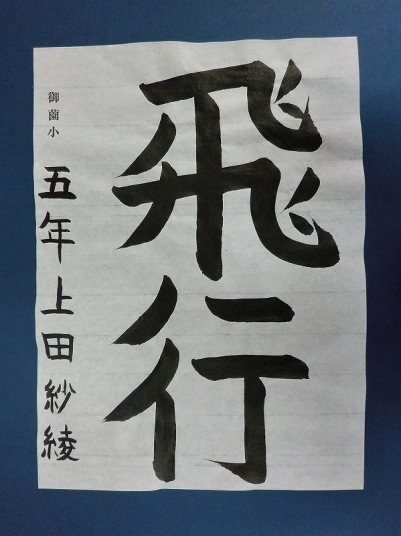 飛行
御薗小
五年上田紗綾